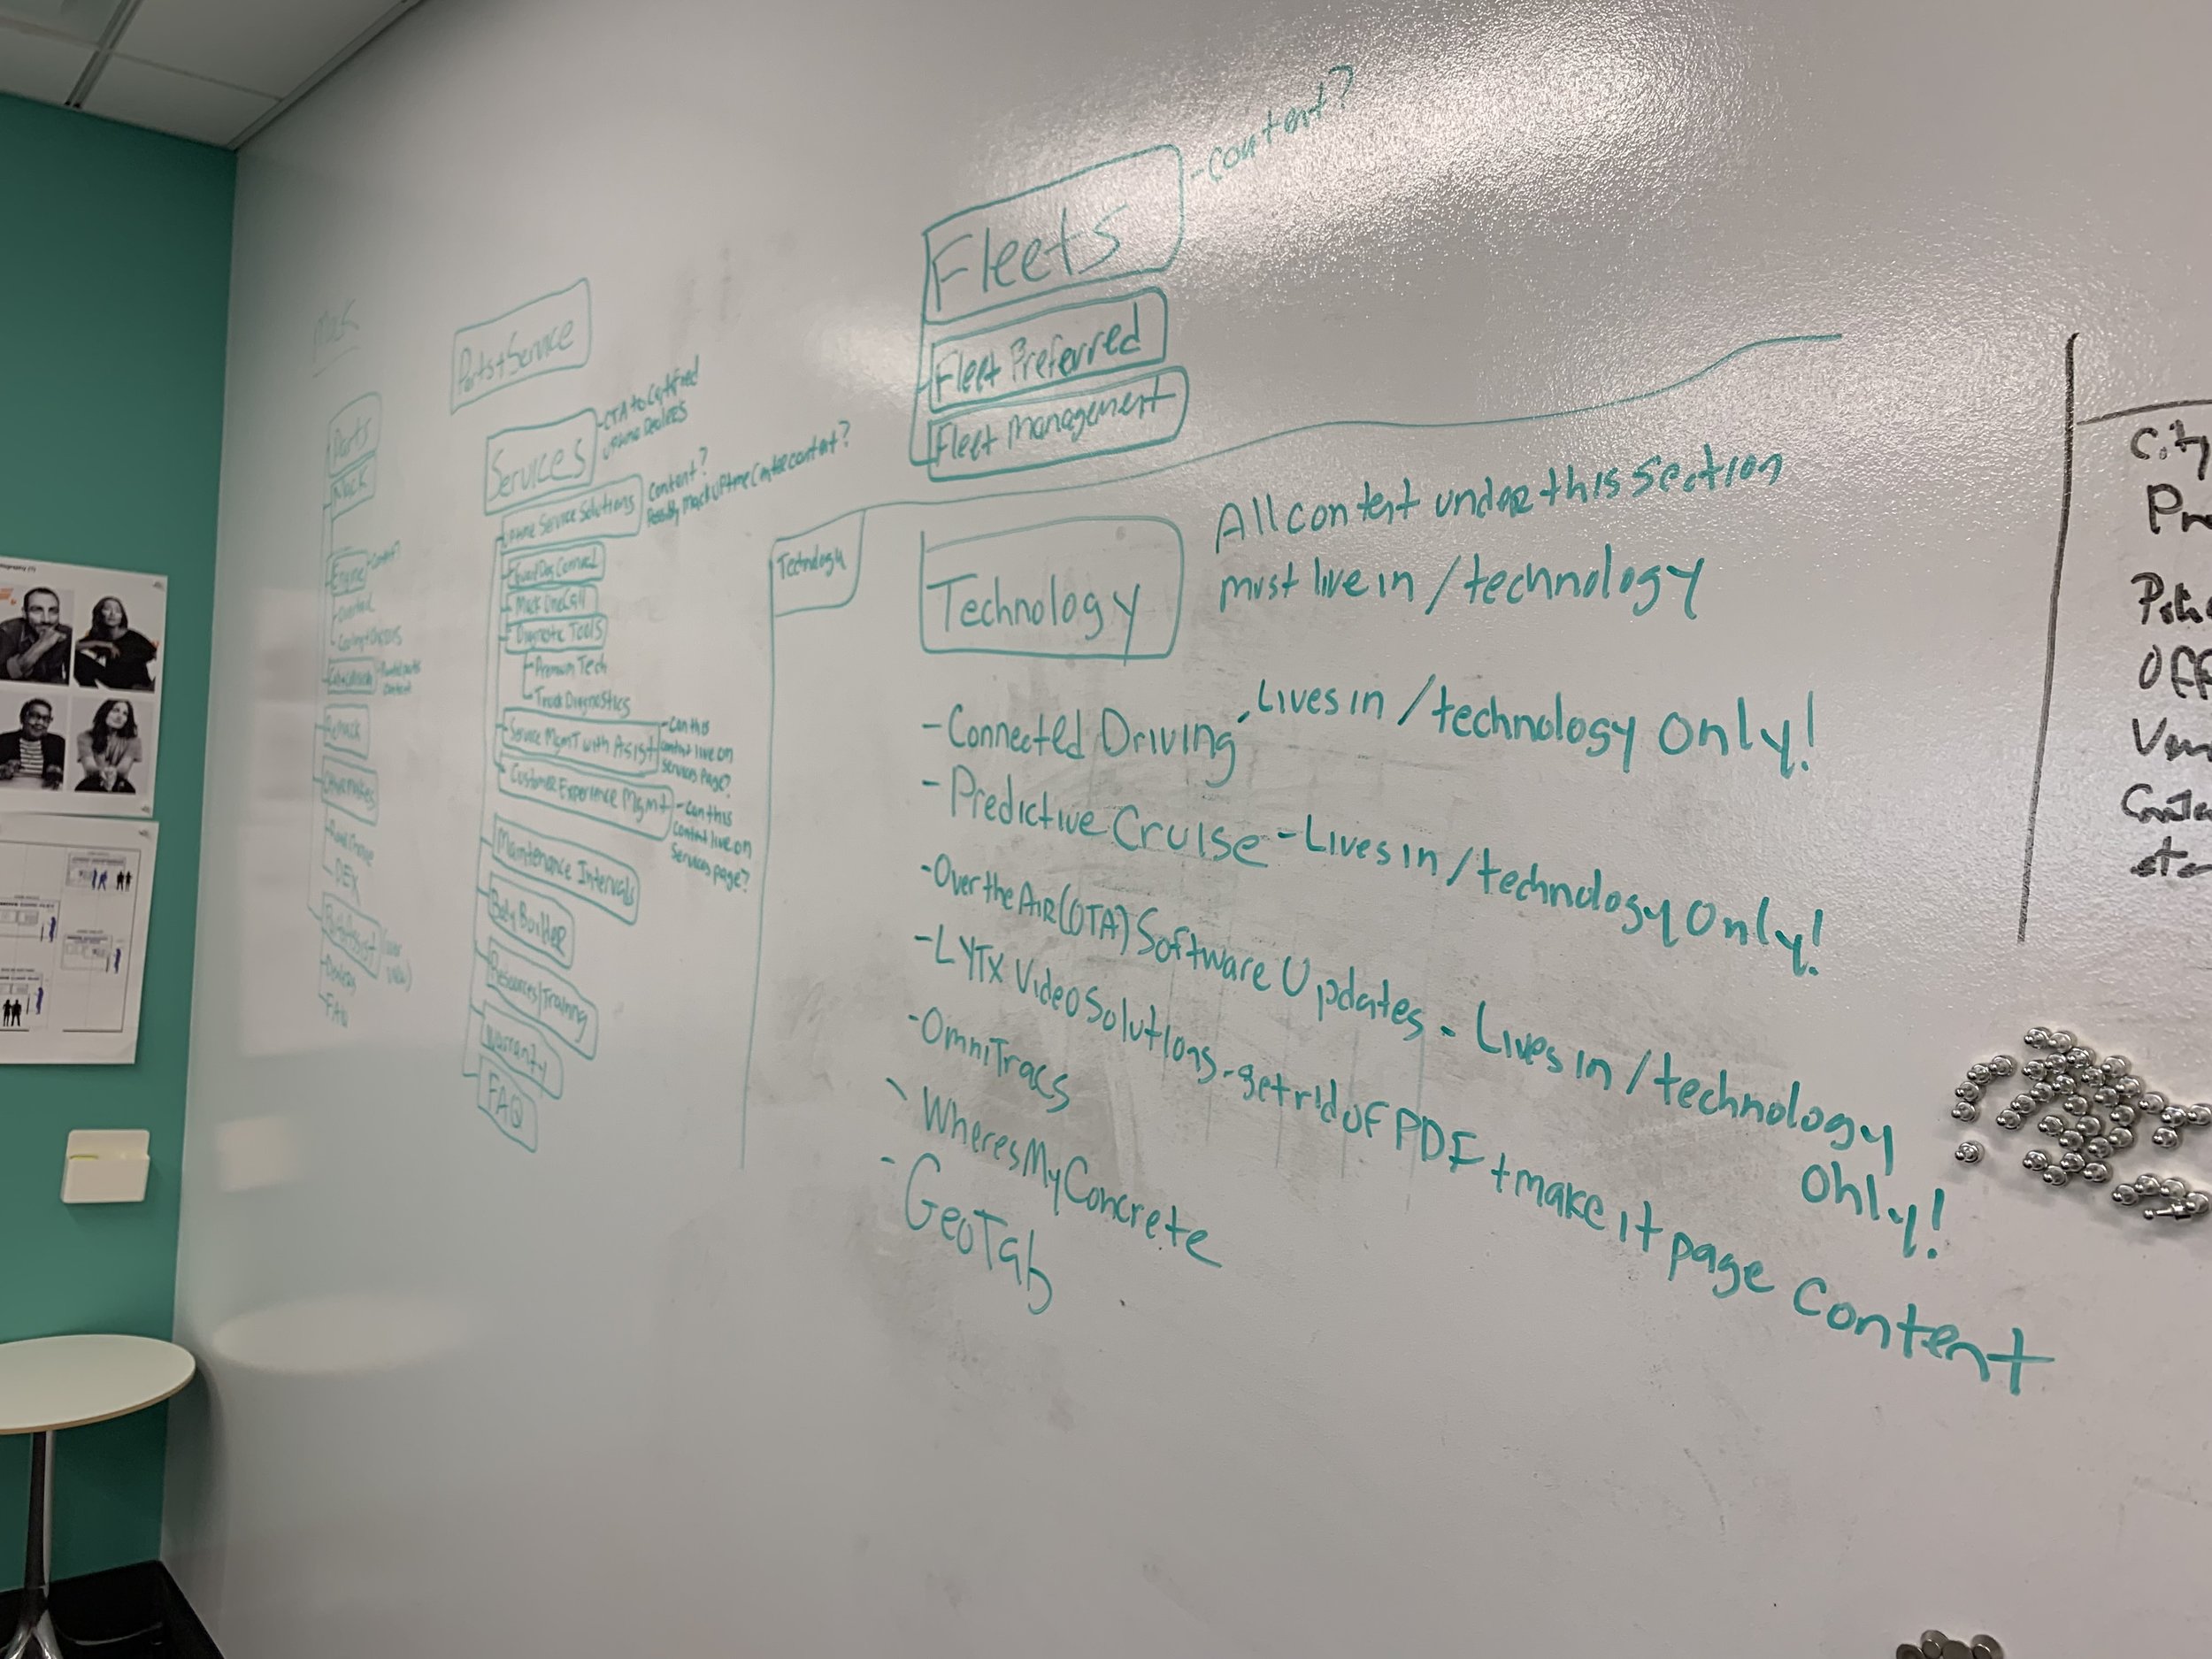 Parts
Mack
Engine
Remack
DEX
FAQ
Parts+Service
Services
-CTA to Certified
uptime Dealers
Uptime Service Solutions
Content?
Possibly Mack Uptime Center content?
GuardDog Connect
Mack OneCall
Diagnostic Tools
Premium Tech
Truck Diagnostics
Service Mgmt with Asist
-Can this
content live on
services page?
Customer Experience Mgmt
-Can this
content live on
Services page?
Maintenance Intervals
Body Builder
Resources/Training
Warranty
FAQ
Fleets
-content?
Fleet Preferred
Fleet Management
Technology
Technology
All content under this section
must live in /technology
-Connected Driving -Lives in /technology Only!
-Predictive Cruise -Lives in /technology Only!
-Over the AIR (OTA) Software Updates - Lives in /technology
Only!
-LYTX Video Solutions -get rid of PDF + make it page content
-OmniTracs
-WheresMyConcrete
-GeoTab
City